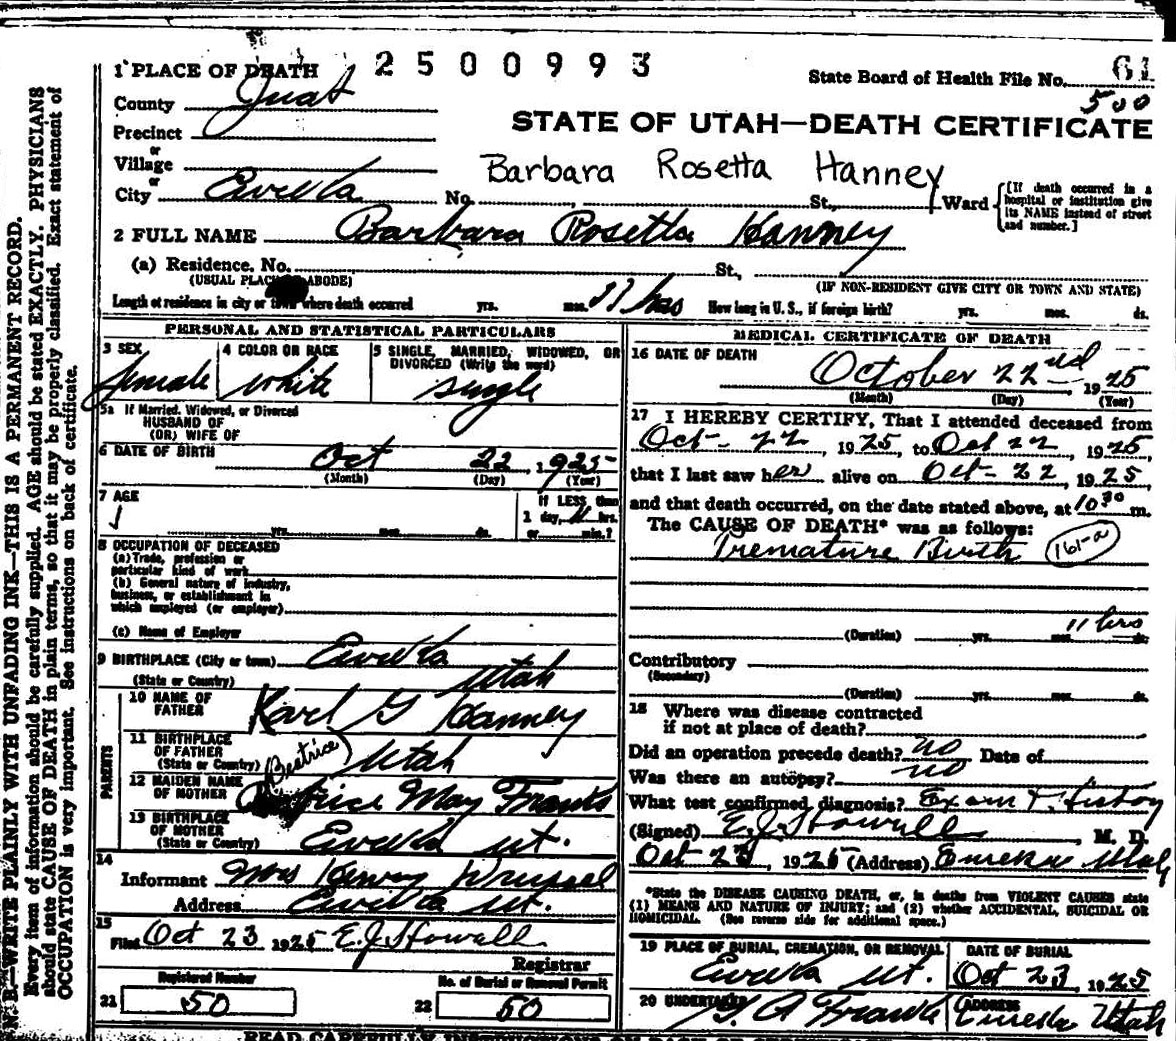 2500993
1 PLACE OF DEATH
State Board of Health File No. 61
500
County Juab
Precinct
STATE OF UTAH—DEATH CERTIFICATE
or
Village
Barbara Rosetta Hanney
or
City Eureka No. St., Ward {[If death occurred in a hospital or institution give its NAME instead of street and number.]
2 FULL NAME Barbara Rosetta Hanney
(a) Residence. No. St.,
(USUAL PLACE ABODE) (IF NON-RESIDENT GIVE CITY OR TOWN AND STATE)
Length of residence in city or town where death occurred yrs. mos. 11 hrs How long in U. S., if foreign birth? yrs. mos. ds.
PERSONAL AND STATISTICAL PARTICULARS
3 SEX 4 COLOR OR RACE 5 SINGLE, MARRIED, WIDOWED, OR
DIVORCED (Write the word)
female white single
5a If Married, Widowed, or Divorced
HUSBAND OF
(OR) WIFE OF
6 DATE OF BIRTH Oct 22, 1925
(Month) (Day) (Year)
7 AGE If LESS than
yrs. mos. ds. 1 day, 11 hrs.
or min.?
8 OCCUPATION OF DECEASED
(a) Trade, profession or
particular kind of work
(b) General nature of industry,
business, or establishment in
which employed (or employer)
(c) Name of Employer
9 BIRTHPLACE (City or town) Eureka
(State or Country) Utah
PARENTS
10 NAME OF
FATHER Karl G Hanney
11 BIRTHPLACE
OF FATHER
(State or Country) Utah
Beatrice
12 MAIDEN NAME
OF MOTHER Beatrice May Franks
13 BIRTHPLACE
OF MOTHER
(State or Country) Eureka Ut.
14
Informant Mrs Henry
Address Eureka Ut.
15
Filed Oct 23 1925 E.J. Howell
Registrar
Registered Number No. of Burial or Removal Permit
21 50 22 50
MEDICAL CERTIFICATE OF DEATH
16 DATE OF DEATH
October 22nd, 1925
(Month) (Day) (Year)
17 I HEREBY CERTIFY, That I attended deceased from
Oct- 22, 1925, to Oct 22, 1925,
that I last saw her alive on Oct- 22, 1925,
and that death occurred, on the date stated above, at 10 30 m.
The CAUSE OF DEATH* was as follows:
Premature Birth 161-a
11 hrs
(Duration) yrs. mos. ds.
Contributory
(Secondary)
(Duration) yrs. mos. ds.
18 Where was disease contracted
if not at place of death?
Did an operation precede death? no Date of
Was there an autopsy? no
What test confirmed diagnosis? Exam & history
(Signed) E.J. Howell, M. D.
Oct 23, 1925 (Address) Eureka Utah
*State the DISEASE CAUSING DEATH, or, in deaths from VIOLENT CAUSES state
(1) MEANS AND NATURE OF INJURY; and (2) whether ACCIDENTAL, SUICIDAL OR
HOMICIDAL. (See reverse side for additional space.)
19 PLACE OF BURIAL, CREMATION, OR REMOVAL DATE OF BURIAL
Eureka Ut. Oct 23, 1925
20 UNDERTAKER ADDRESS
A Franks Eureka Utah
B.—WRITE PLAINLY WITH UNFADING INK—THIS IS A PERMANENT RECORD.
Every item of information should be carefully supplied. AGE should be stated EXACTLY. PHYSICIANS
should state CAUSE OF DEATH in plain terms, so that it may be properly classified. Exact statement of
OCCUPATION is very important. See instructions on back of certificate.